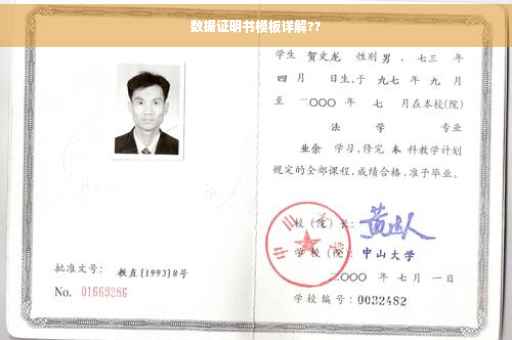 数据证明书模板详解??
学生 贺文龙 性别 男 、七三 年
四 月 日生,于 九七 年 九 月
至 二〇〇〇 年 七 月在本校(院)
法 学 专业
业余 学习,修完 本 科教学计划
规定的全部课程,成绩合格,准予毕业。
校(院)长:
学校(院): 中山大学
二〇〇〇 年 七月 一日
学校编号: 0032482
批准文号: 教直[1993]8号
No. 01669286